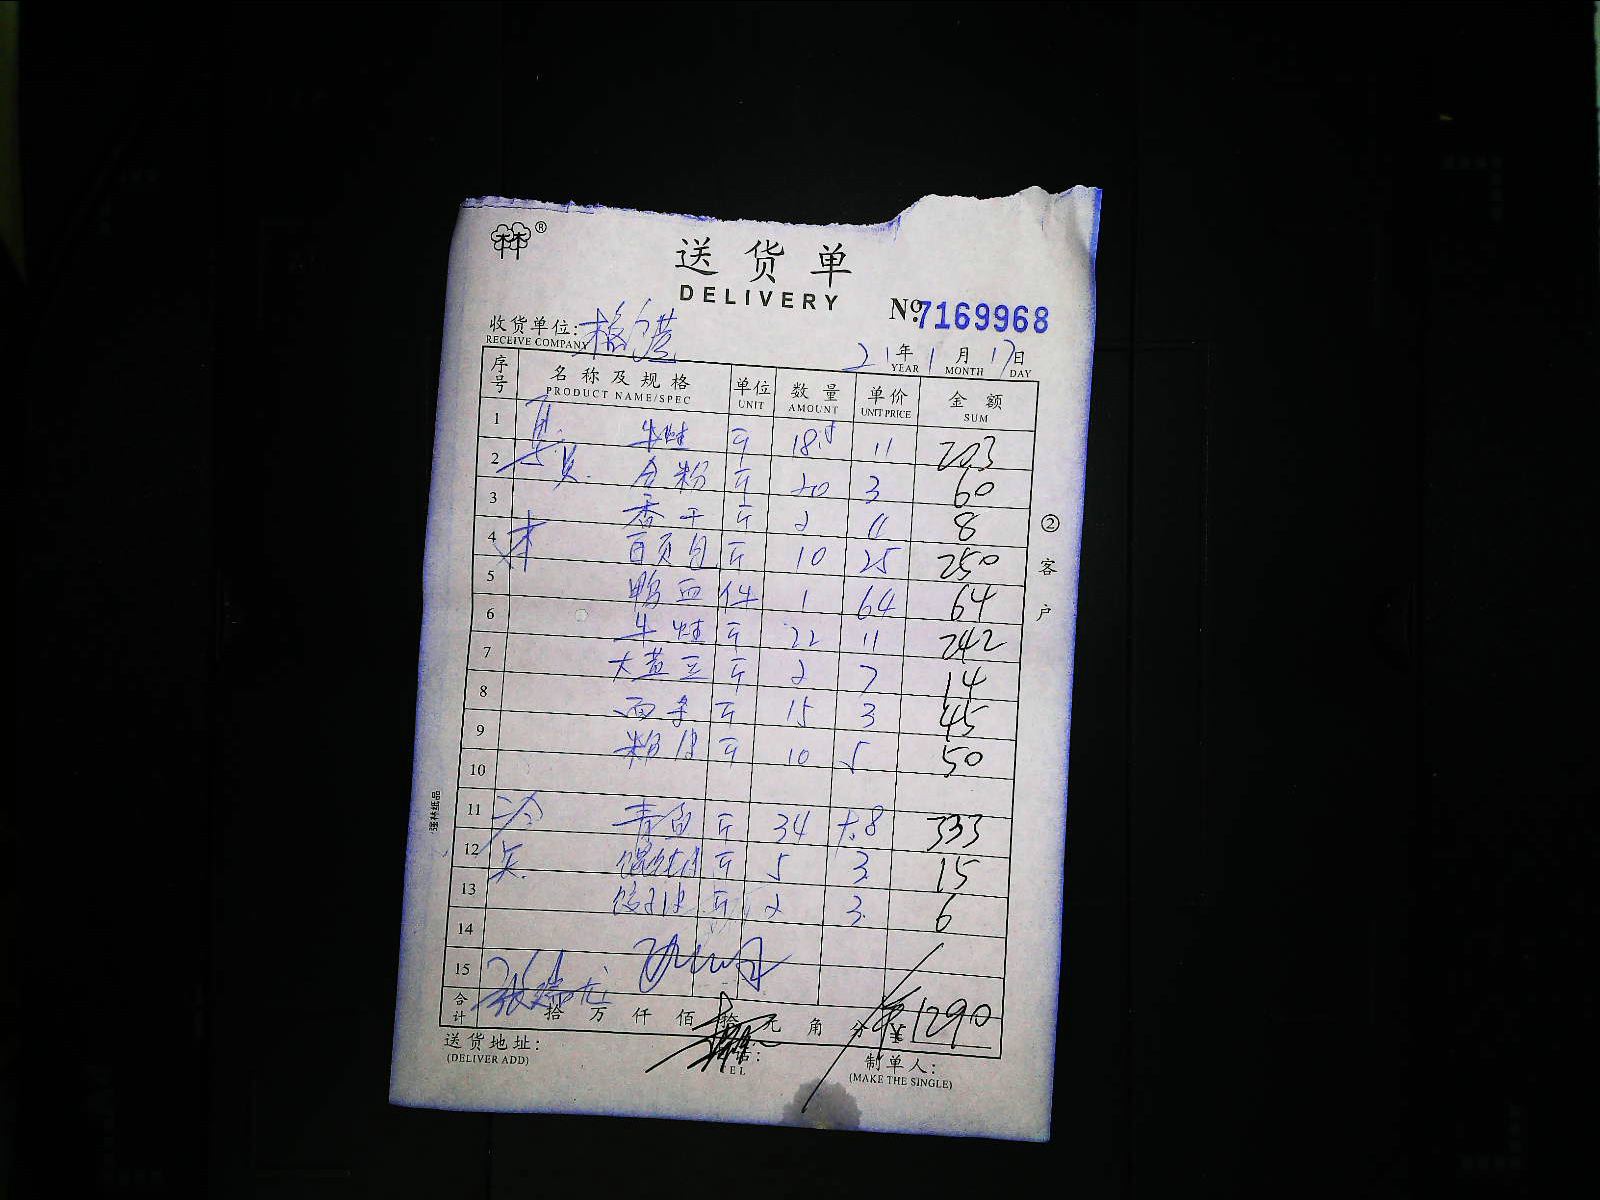 林®
送货单
DELIVERY
No: 7169968
收货单位:
RECEIVE COMPANY
21年 1月 17日
YEAR MONTH DAY
序号 名称及规格 单位 数量 单价 金额
PRODUCT NAME/SPEC UNIT AMOUNT UNIT PRICE SUM
1 牛蛙 斤 18.5 11 203
2 合粉 斤 20 3 60
3 香干 斤 2 4 8
4 百页包 斤 10 25 250
5 鸭血 件 1 64 64
6 牛蛙 斤 22 11 242
7 大黄豆 斤 2 7 14
8 西芹 斤 15 3 45
9 粉皮 斤 10 5 50
10
11 冷 青鱼 斤 34 9.8 333
12 馄饨皮 斤 5 3 15
13 饺子皮 斤 2 3 6
14
15
合计 拾 万 仟 佰 拾 元 角 分 ¥ 1290
送货地址:
(DELIVER ADD)
电话:
TEL
制单人:
(MAKE THE SINGLE)
②客户
强林纸品